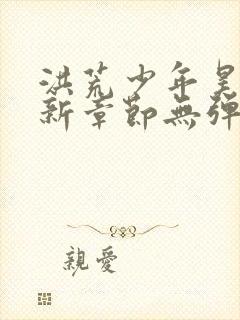 洪荒少年昊
新章節無彈
親愛